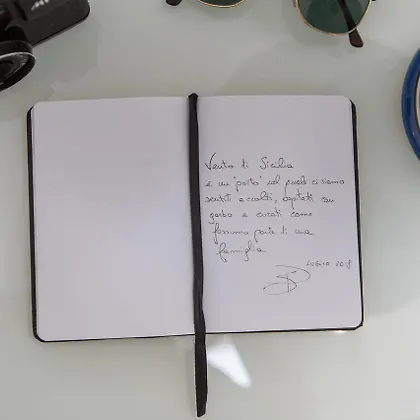 Vento di Sicilia
è un "posto" nel quale ci siamo
sentiti accolti, ospitati con
garbo e curati come
fossimo parte di una
famiglia
Luglio 2018